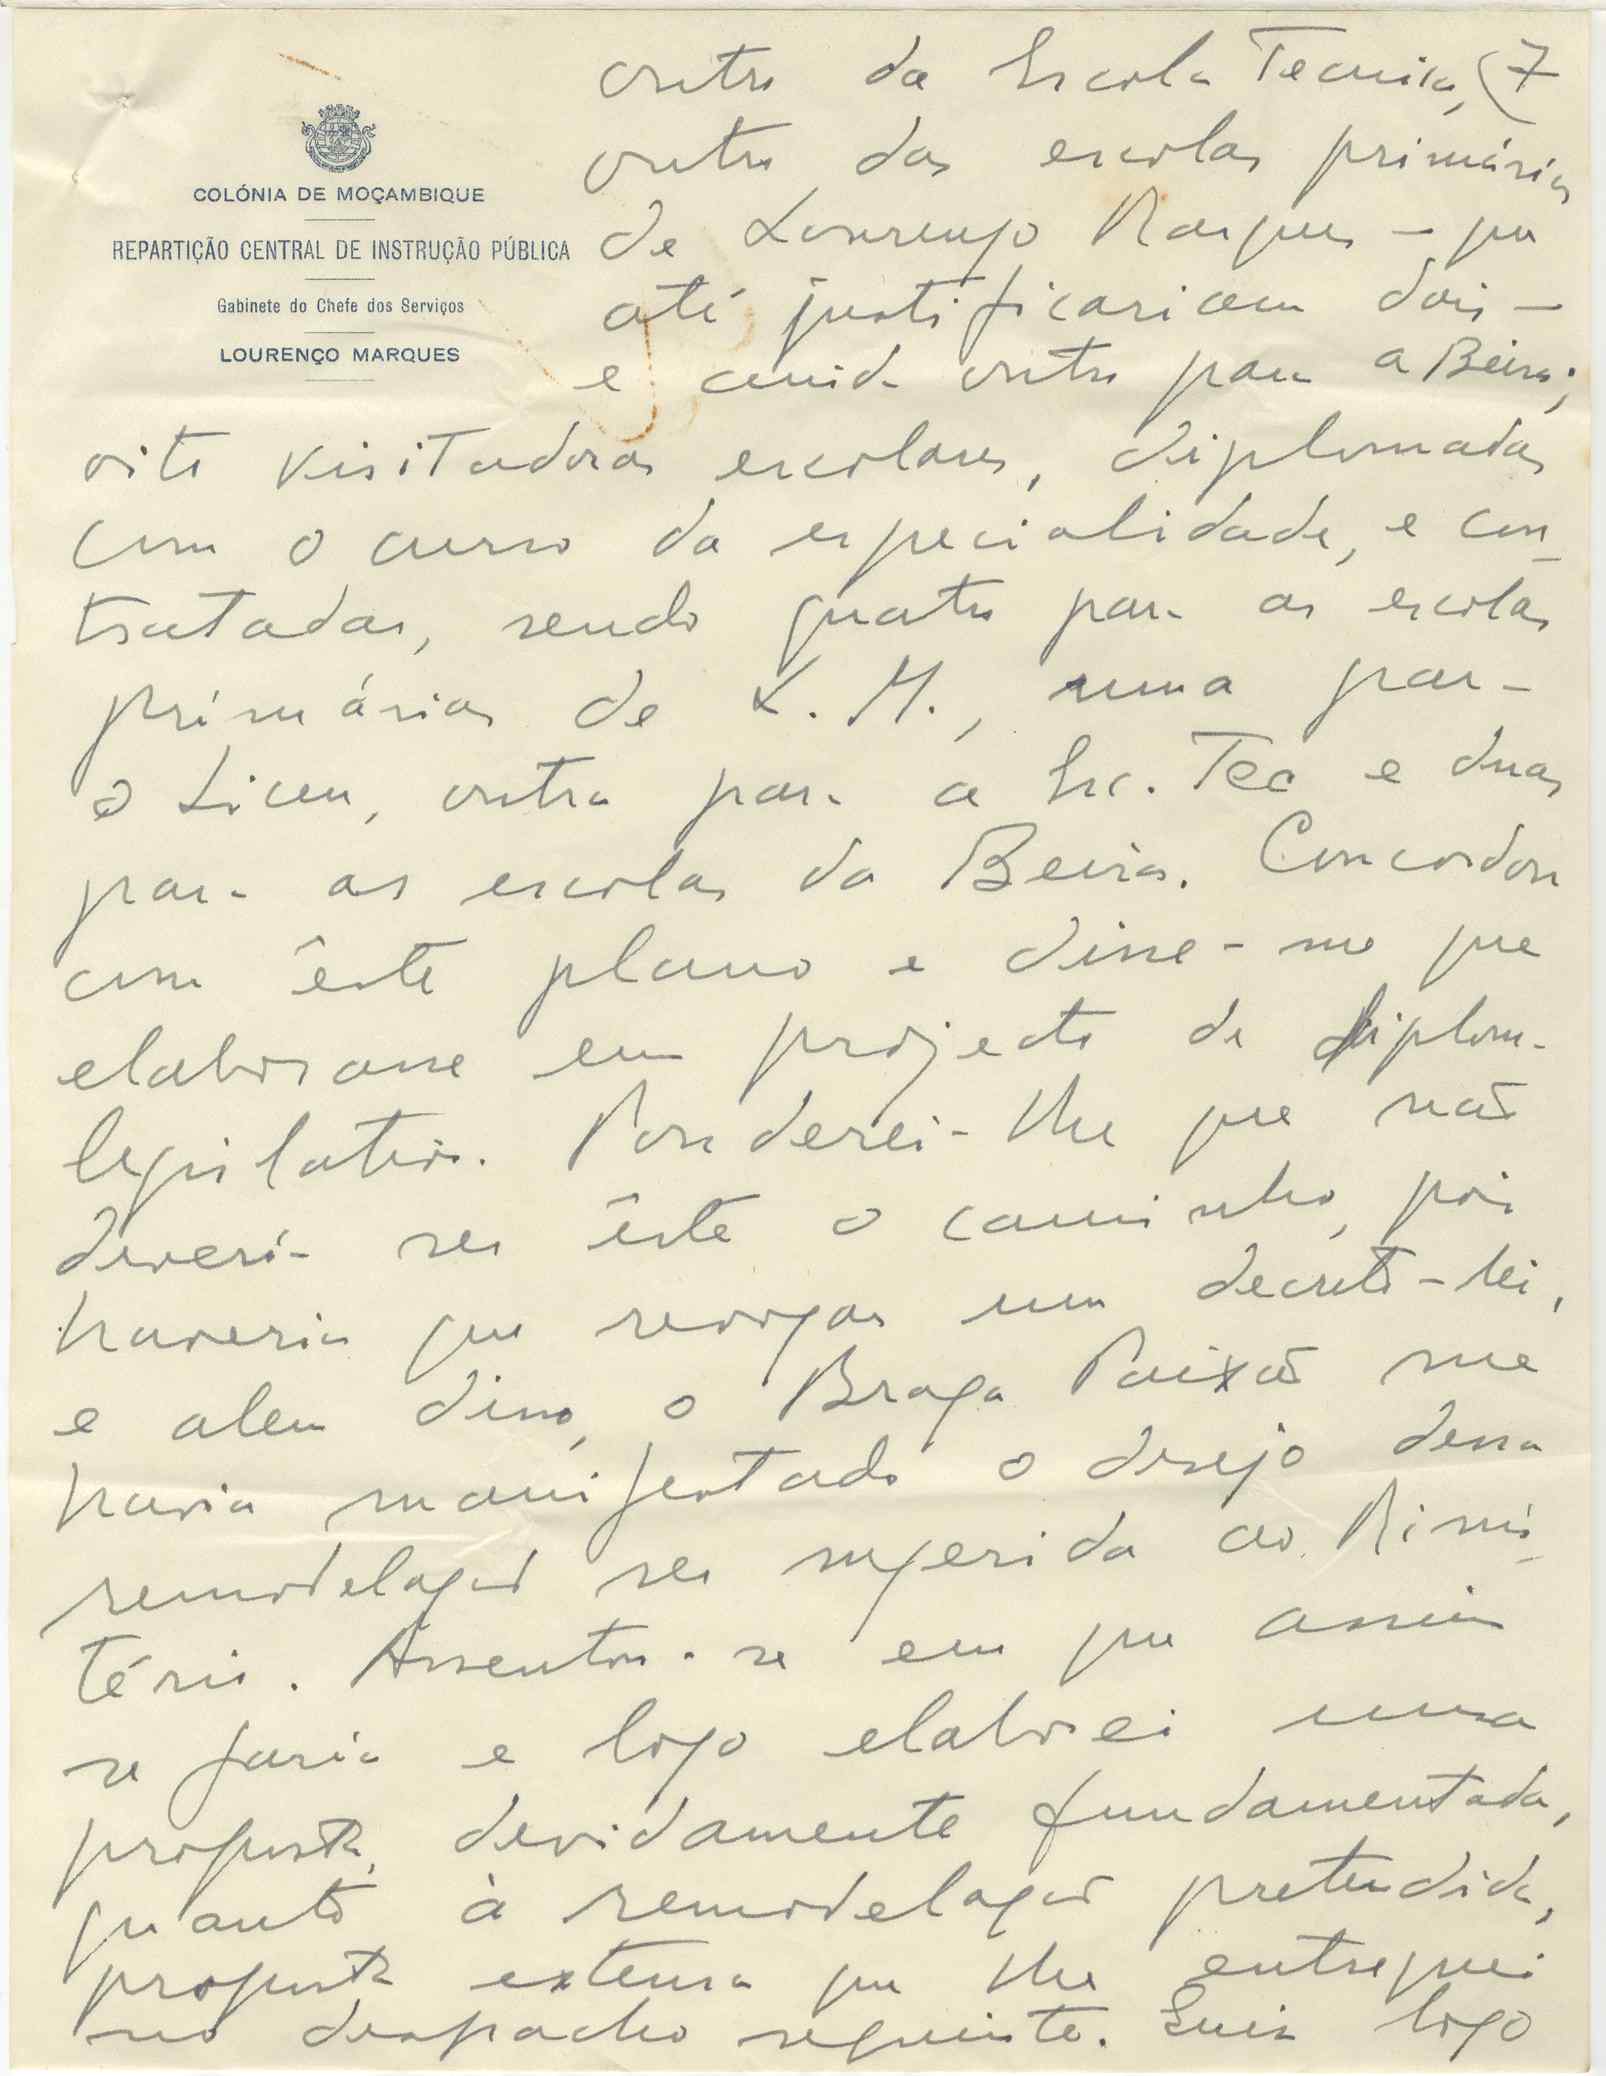 COLÓNIA DE MOÇAMBIQUE
REPARTIÇÃO CENTRAL DE INSTRUÇÃO PÚBLICA
Gabinete do Chefe dos Serviços
LOURENÇO MARQUES
outro da Escola Tecnica, (7
outro das escolas primárias
de Lourenço Marques - que
até justificariam dois -
e ainda outro para a Beira;
oito visitadoras escolares, diplomadas
com o curso da especialidade, e con-
tratadas, sendo quatro para as escolas
primárias de L. M., uma para
o Liceu, outra para a Esc. Tec e duas
para as escolas da Beira. Concordou
com êste plano e disse-me que
elaborasse um projecto de diploma
legislativo. Ponderei-lhe que não
deveria ser êste o caminho, pois
haveria que revogar um decreto-lei,
e alem disso, o Braga Paixão me
havia manifestado o desejo dessa
remodelação ser sugerida ao Minis-
tério. Assentou-se em que assim
se faria e logo elaborei uma
proposta, devidamente fundamentada,
quanto à remodelação pretendida,
proposta extensa que lhe entreguei
no despacho seguinte. Quis logo